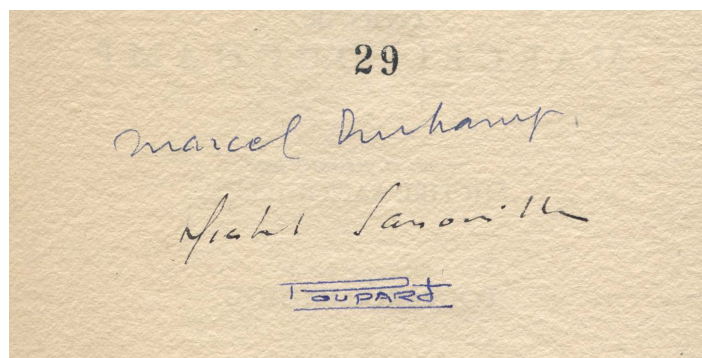 29
Marcel Duchamp.
Michel Sanouillet
Poupard